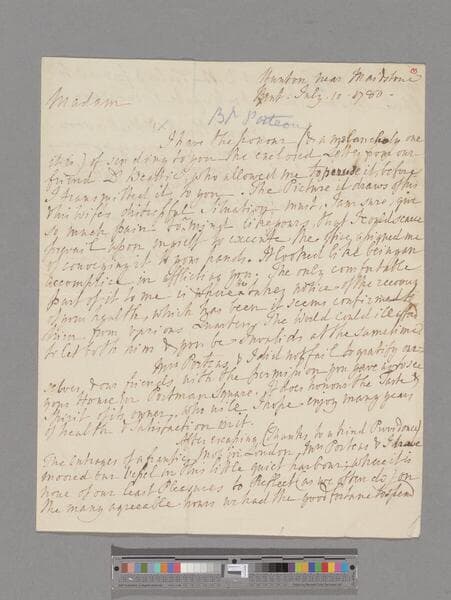 Hunton, near Maidstone
Kent. July 10. 1780.
Madam
Bp Porteus
I have the honour (& a melancholy one
it is) of sending to you the enclosed Letter from our
friend Dr Beattie, who allowed me to peruse it, before
I transmitted it to you. The Picture it draws of his
& his wife's distressful Situation must, I am sure, give
so much pain to a mind like yours, that I could scarce
prevail upon myself to execute the office assigned me
of conveying it to your hands. It looked like being an
accomplice in afflicting you. The only comfortable
part of it to me is where he takes notice of the recovery
of your health, which has been it seems confirmed to
him from various Quarters. The World could ill afford
to let both him & you be Invalids at the same time.
Mrs Porteus & I did not fail to gratify our-
selves, & our friends, with the permission you gave us to see
your House in Portman Square. It does honour to the Taste &
Spirit of its owner, who will I hope enjoy many years
of health & satisfaction in it.
After escaping (thanks to a kind Providence)
the Outrages of a frantic Mob in London, Mrs Porteus & I have
moored our Vessel in this little quiet harbour; where it is
none of our least Pleasures to reflect (as we often do) on
the many agreeable hours we had the good fortune to spend